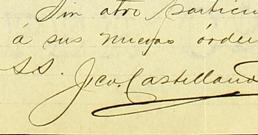 Sin otro particu
á sus nuevas órde
S.S. Fco. Castellano